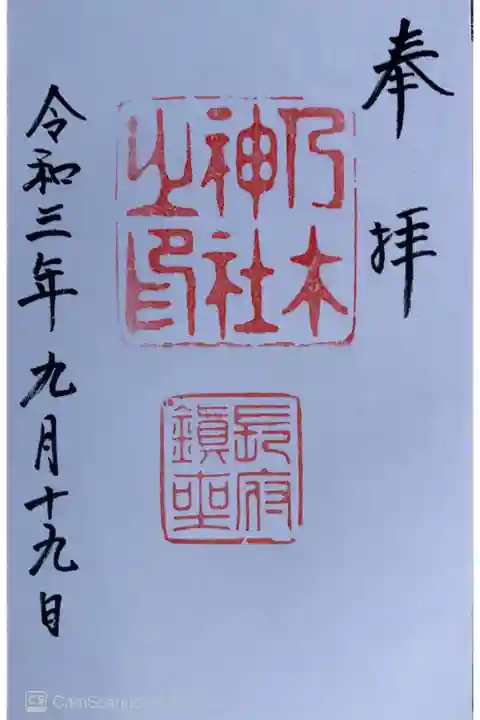 奉拝
乃木
神社
之印
長府
鎮座
令和三年九月十九日
CS CamScanner